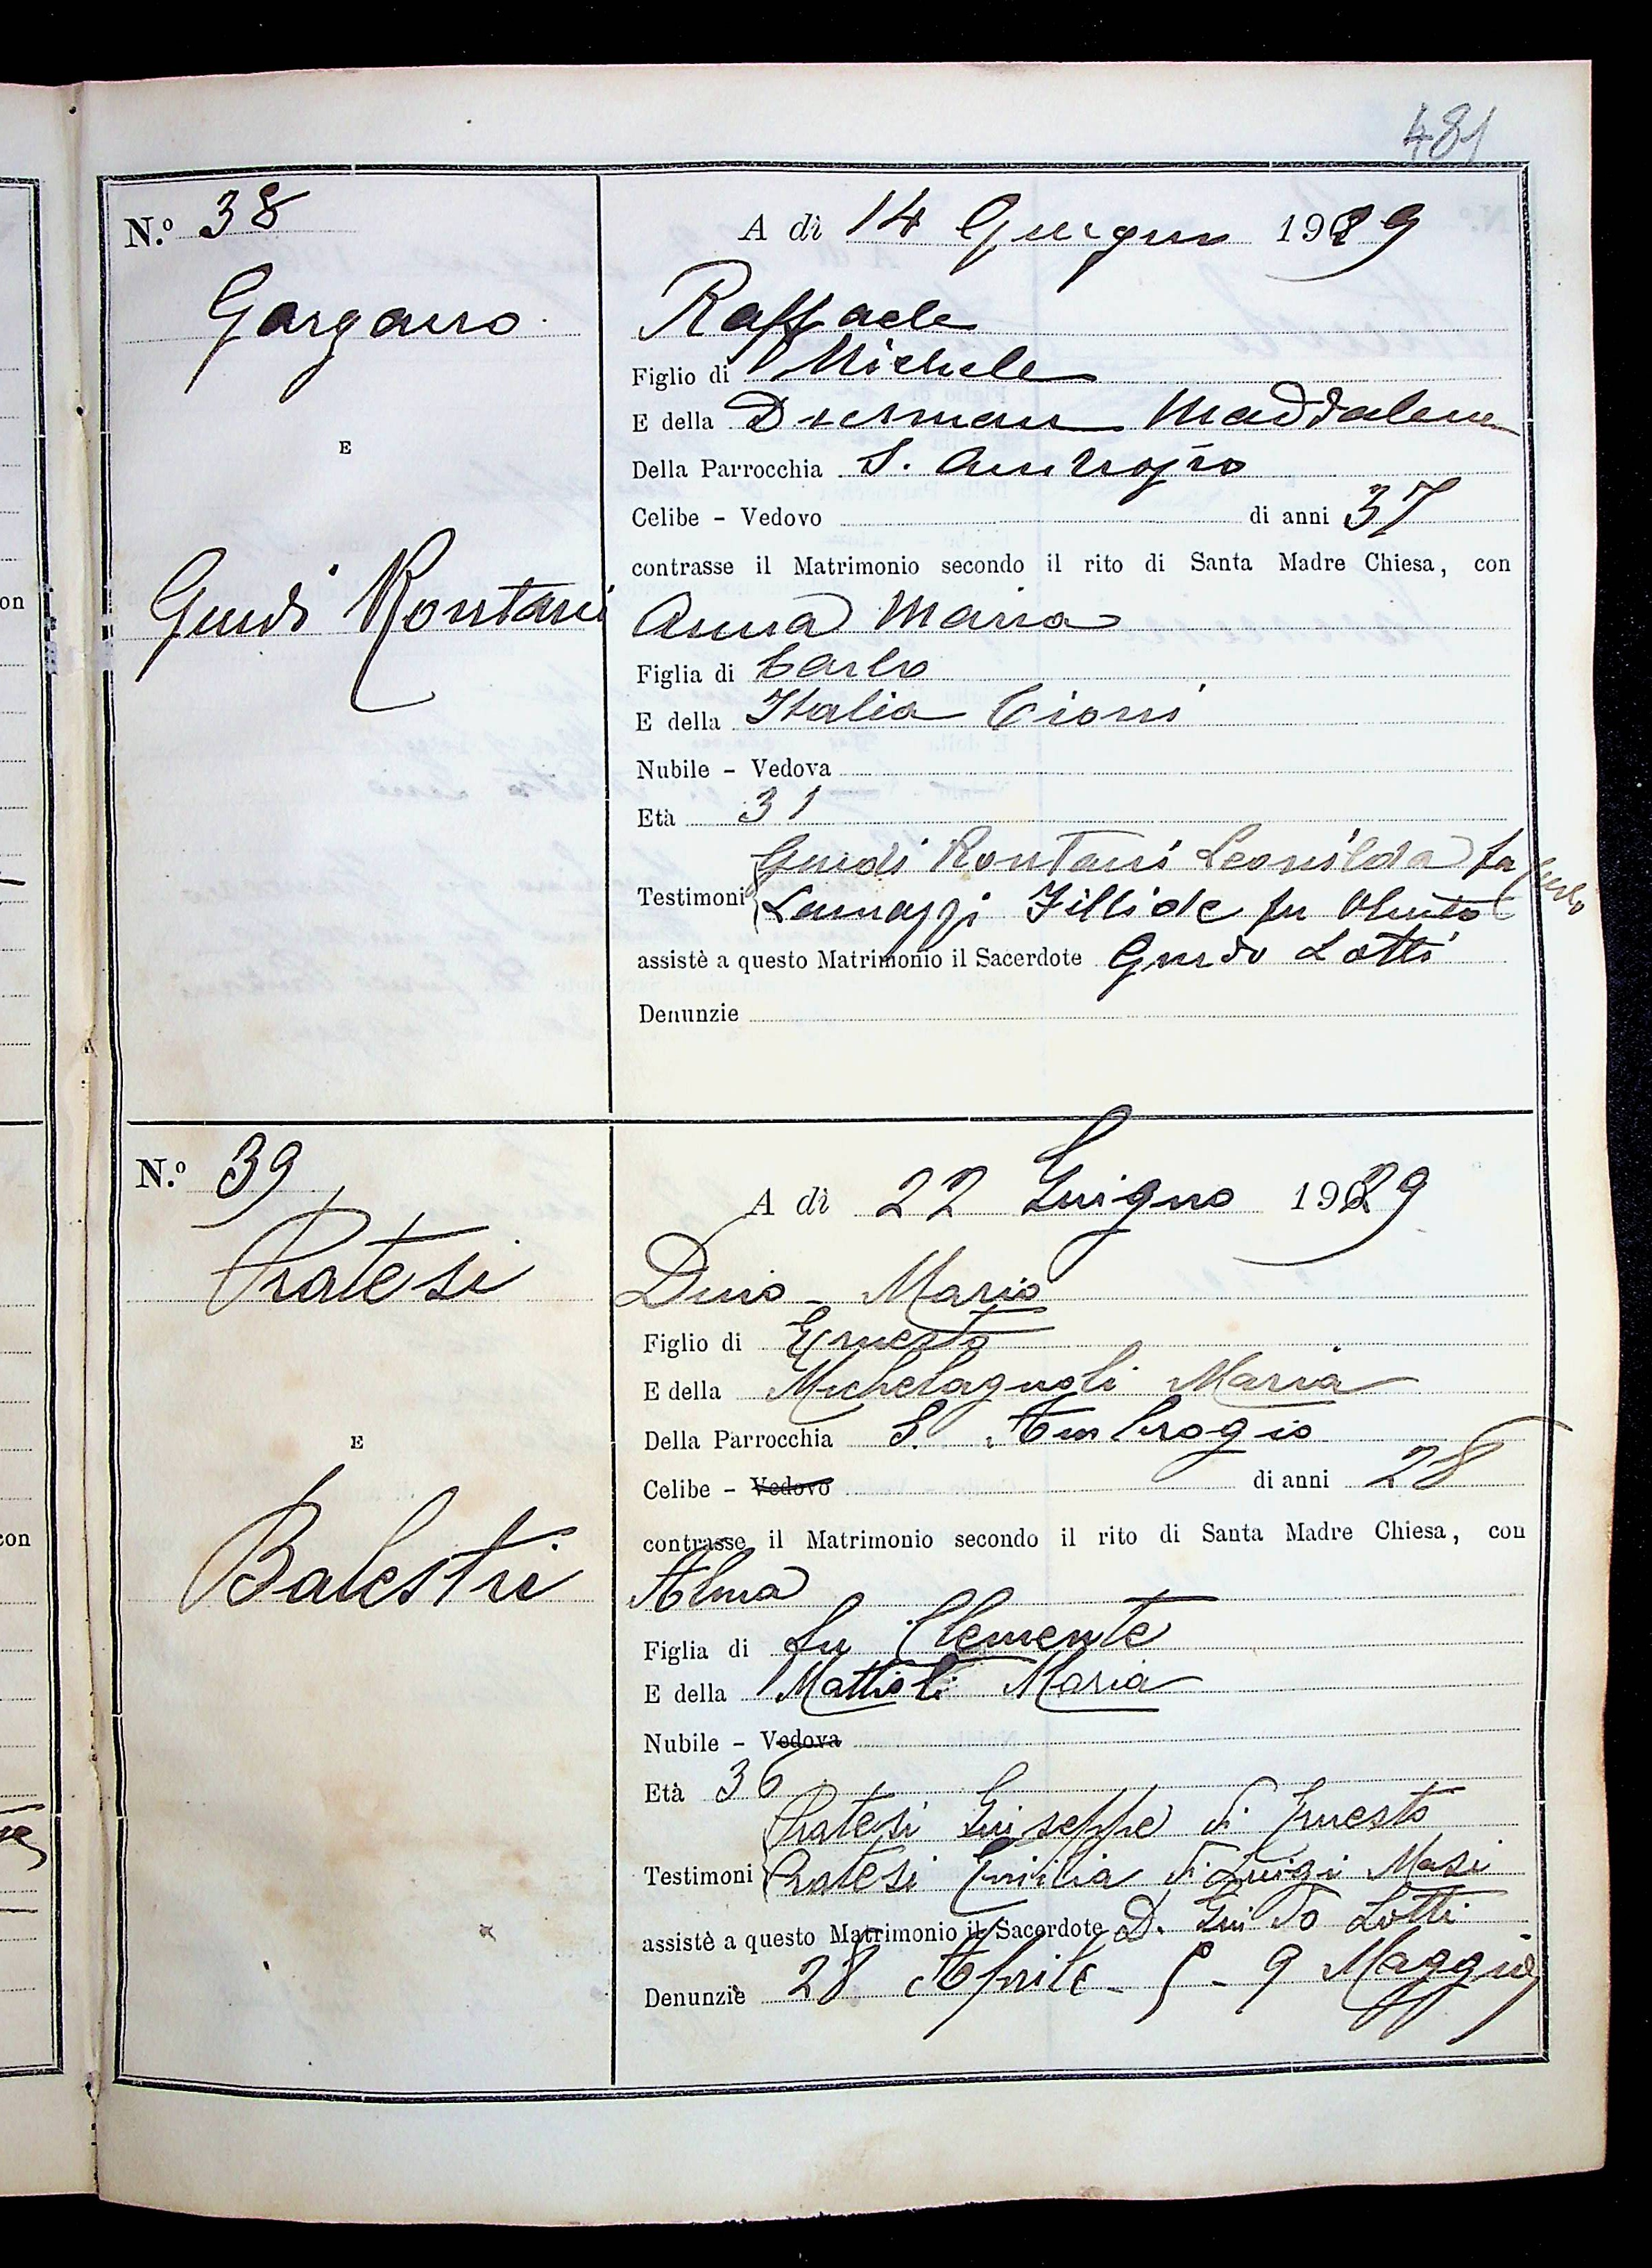 481
N.º 38
A dì 14 Giugno 1929
Gargano
Raffaele
Figlio di Michele
E della Maddalena
E
Della Parrocchia S. Ambrogio
Celibe - Vedovo di anni 37
contrasse il Matrimonio secondo il rito di Santa Madre Chiesa, con
Guidi Rontani
Anna Maria
Figlia di Carlo
E della Italia Cioni
Nubile - Vedova
Età 31
Guidi Rontani Leonilda fu
Testimoni Fillide fu
assistè a questo Matrimonio il Sacerdote Guido Lotti
Denunzie
N.º 39
A dì 22 Giugno 1929
Pratesi
Dino - Mario
Figlio di Ernesto
E della Michelagnoli Maria
E
Della Parrocchia S. Ambrogio
Celibe - Vedovo di anni 28
contrasse il Matrimonio secondo il rito di Santa Madre Chiesa, con
Balestri
Alma
Figlia di fu Clemente
E della Mattioli Maria
Nubile - Vedova
Età 36
Pratesi Giuseppe di Ernesto
Testimoni Pratesi Emilia di Luigi Masi
assistè a questo Matrimonio il Sacerdote D. Guido Lotti
Denunzie 28 Aprile - 5 - 9 Maggio